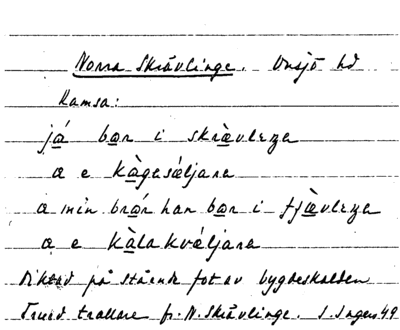 Norra Skrävlinge. Onsjö hd
Ramsa:
já bor i skrævleŋe
a e kàgesǽljare
a min brór han bor i fjævleŋe
a e kàlakvǽljare
Diktad på stående fot av bygdeskalden
Truid trallare fr. N. Skrävlinge. I. Ingers 49